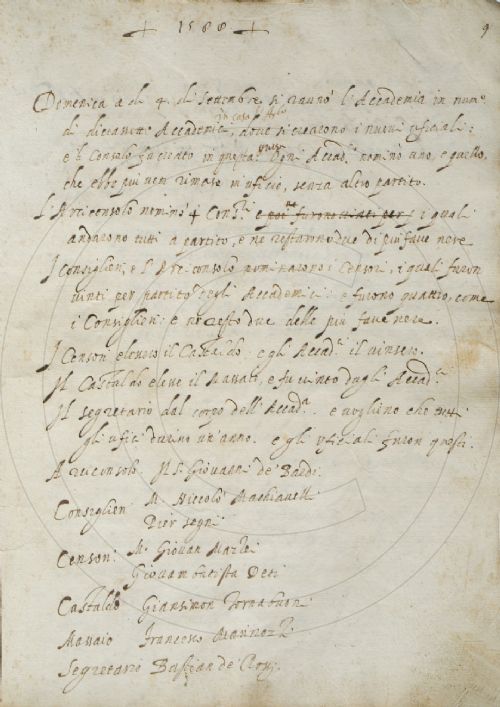 + 1588 +
9
Domenica a dì 4 di Settembre si raunò l'Accademia in num.o
di diccassette Accademici, in casa dove si crearono i nuovi uficiali:
e 'l Consolo fu creato in questa guisa. Ogni Accad.co nominò uno, e quello,
che ebbe più nom rimase in uficio, senza altro partito.
L'Arciconsolo nominò 4 Cons.ri e poi ne furono per i quali
andarono tutti a partito, e ne restarono due di più fave nere
I Consiglieri, e l'Arciconsolo nominarono i Censori, i quali furon
vinti per partito degli Accademici: e furono quattro, come
i Consiglieri: e ne restò due delle più fave nere.
I Censori elessero il Castaldo, e gli Accad.ci il vinsero.
Il Castaldo elesse il Massaio, e fu vinto dagli Accad.ci
Il segretario dal corpo dell'Accad.a e vogliono che tutti
gli ufici durino un'anno. e gli uficiali furon questi.
Arciconsolo M. Giovanni de' Bardi.
Consiglieri M. Niccolò Machiavelli
Pier Segni
Censori M. Giovan
Giovambatista Deti
Castaldo Giansimon Tornabuoni
Massaio Francesco
Segretario Bastian de' Rossi.